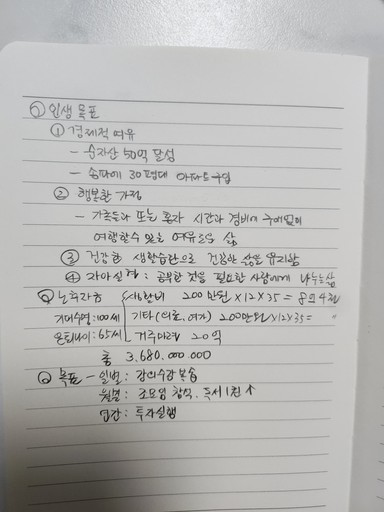 ◎ 인생 목표
① 경제적 여유
- 순자산 50억 달성
- 송파에 30평대 아파트 구입
② 행복한 가정
- 가족들과 또는 혼자 시간과 경비에 구애없이
여행할수 있는 여유로운 삶
③ 건강한 생활습관으로 건강한 삶을 유지함
④ 자아실현 : 공부한 것을 필요한 사람에게 나누는 삶
◎ 노후자금 생활비 200만원 X 12 X 35 = 8억 4천
기대수명 : 100세 기타(의료, 여가) 200만원 X 12 X 35 =
은퇴나이 : 65세 거주마련 20억
총 3,680,000,000
◎ 목표 - 일별 : 강의수강 복습
월별 : 조모임 참석, 독서 1권 ↑
연간 : 투자실행